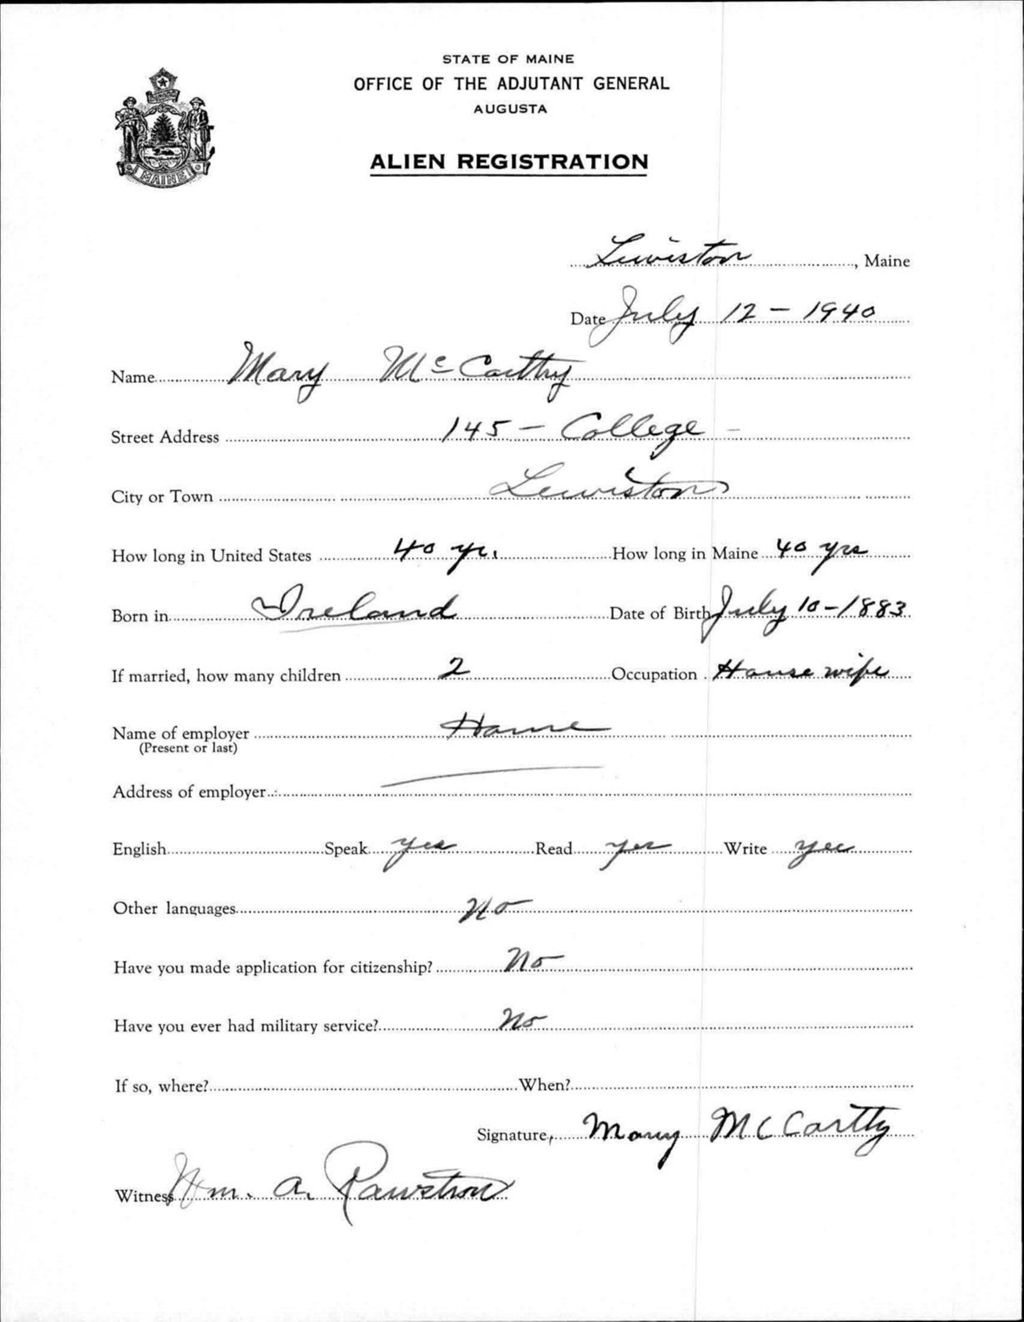 STATE OF MAINE
OFFICE OF THE ADJUTANT GENERAL
AUGUSTA
ALIEN REGISTRATION
MAINE
Lewiston, Maine
Date July 12 - 1940
Name Mary McCarthy
Street Address 145 - College -
City or Town Lewiston
How long in United States 40 yrs. How long in Maine 40 yrs
Born in Ireland Date of Birth July 10-1883
If married, how many children 2 Occupation Housewife
Name of employer Home
(Present or last)
Address of employer
English Speak yes Read yes Write yes
Other languages No
Have you made application for citizenship? No
Have you ever had military service? No
If so, where? When?
Signature, Mary McCartty
Witness Wm. A. Rawstron